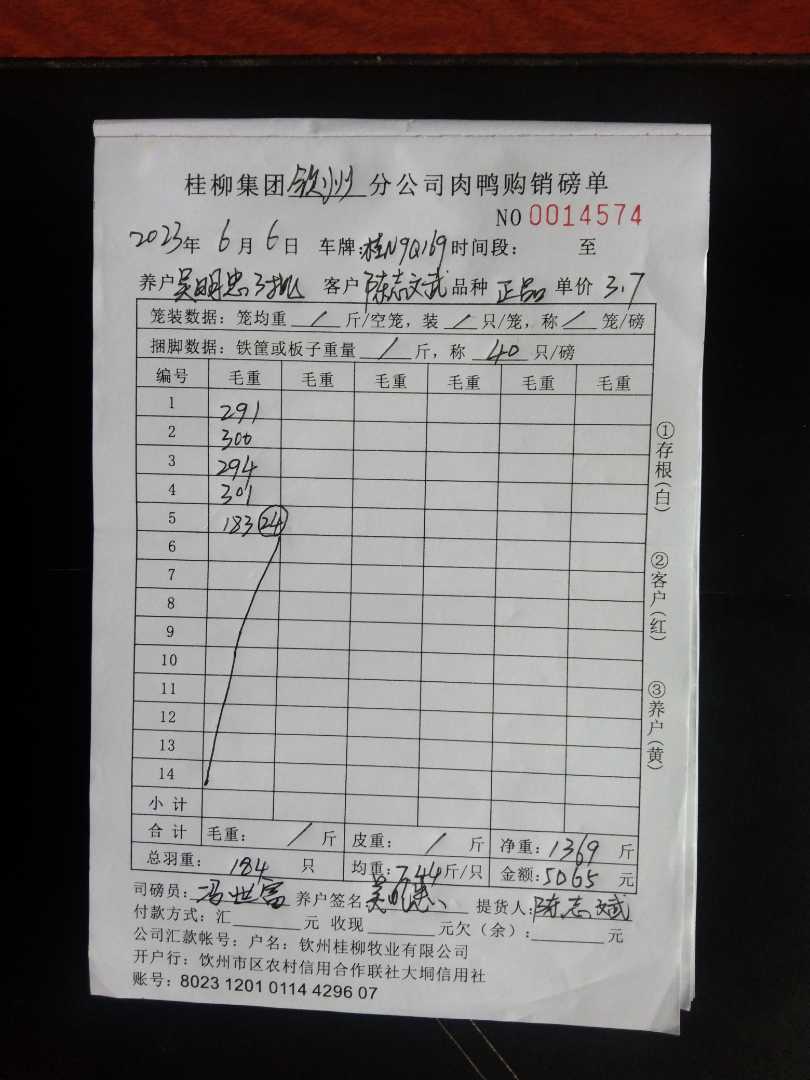 桂柳集团钦州分公司肉鸭购销磅单
NO 0014574
2023年 6月 6日 车牌:桂N9Q169 时间段: 至
养户 吴明忠 客户 陈志文武 品种 正品 单价 3.7
笼装数据: 笼均重 / 斤/空笼, 装 / 只/笼, 称 / 笼/磅
捆脚数据: 铁筐或板子重量 / 斤, 称 40 只/磅
编号 毛重 毛重 毛重 毛重 毛重 毛重
1 291
2 300
3 294
4 301
5 183 24
6
7
8
9
10
11
12
13
14
小计
合计 毛重: / 斤 皮重: / 斤 净重: 1369 斤
总羽重: 184 只 均重: 7.44 斤/只 金额: 5065 元
司磅员: 冯世富 养户签名 吴明忠 提货人: 陈志文武
付款方式: 汇 元 收现 元欠(余): 元
公司汇款帐号: 户名: 钦州桂柳牧业有限公司
开户行: 钦州市区农村信用合作联社大垌信用社
账号: 8023 1201 0114 4296 07
①存根(白)
②客户(红)
③养户(黄)